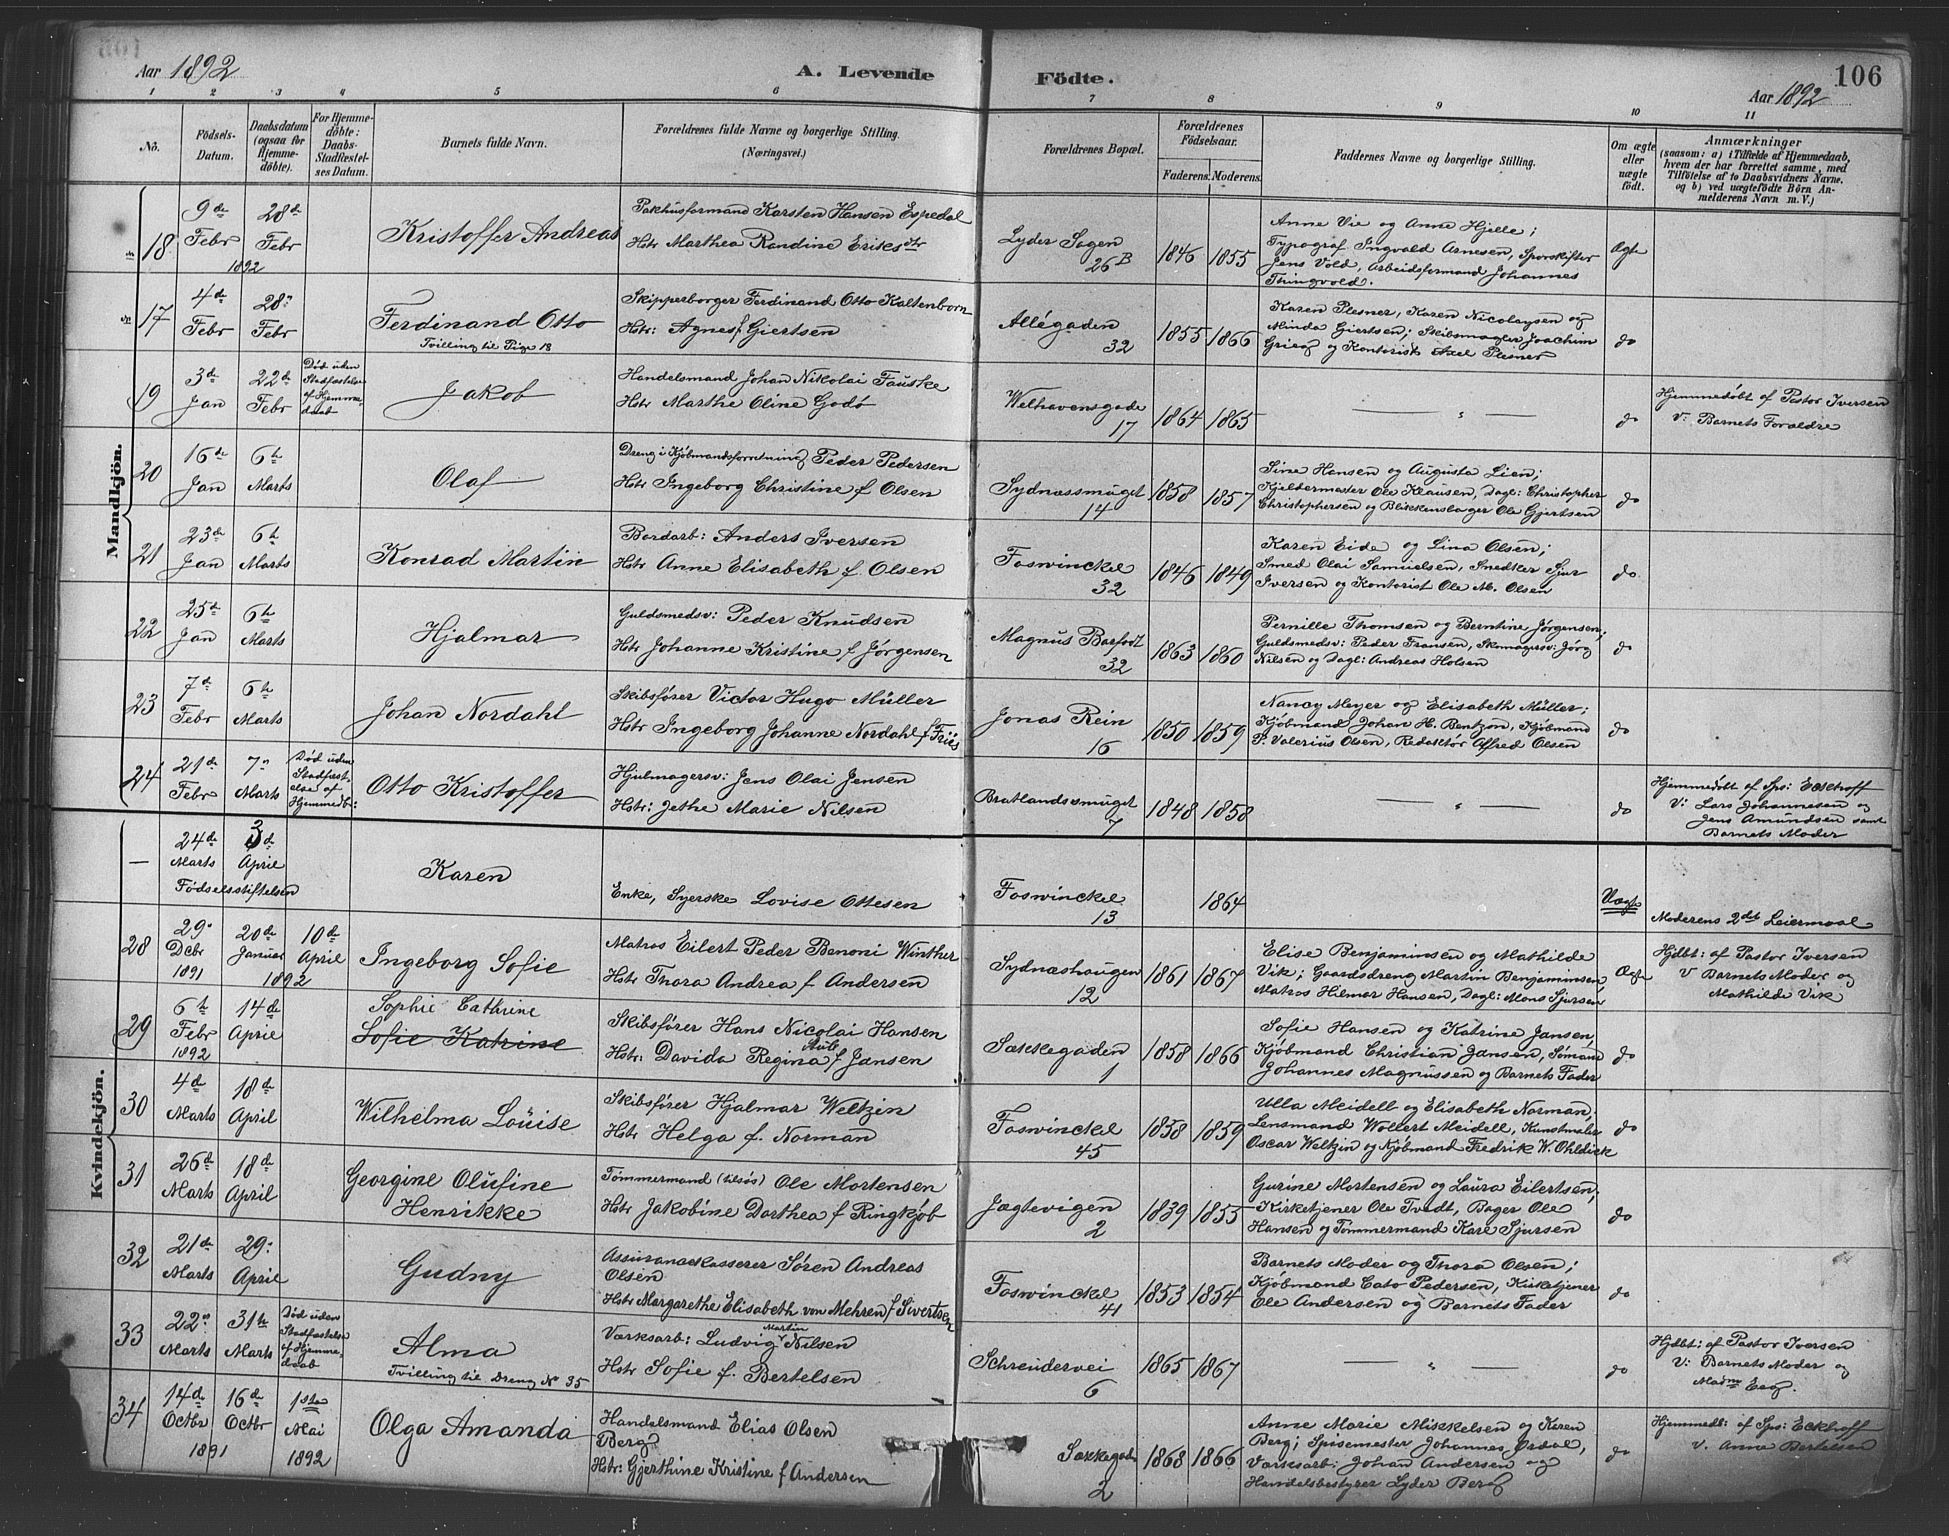 Aar 1892
A. Levende Födte.
106
Aar 1892
1 2 3 4 5 6 7 8 9 10 11
No.
Födsels-Datum.
Daabsdatum (ogsaa for Hjemmedöbte).
For Hjemmedöbte: Daabs-Stadfæstelses Datum.
Barnets fulde Navn.
Forældrenes fulde Navne og borgerlige Stilling.
(Næringsvei.)
Forældrenes Bopæl.
Forældrenes Födselsaar.
Faderens. Moderens.
Faddernes Navne og borgerlige Stilling.
Om ægte eller uægte födt.
Anmærkninger
(saasom: a) i Tilfælde af Hjemmedaab, hvem der har forrettet samme, med Tilföielse af to Daabsvidners Navne. og b) ved uægtefödte Börn Anmelderens Navn m. V.)
Mandkjön.
18
9de Febr 1892
28de Febr
Kristoffer Andreas
Pakhusformand Karsten Hansen Espedal
Hstr Marthea Randine Eriksdtr
Lyder Sagen 26 B
1846 1855
Anne Vie og Anne Hjelle;
Typograf Ingvald Arnesen, Sporskifter
Jens Vold, Arbeidsformand Johannes
Thingvold.
Ægte
17
4de Febr
28de Febr
Ferdinand Otto
Tvilling til Pige 18
Skipperborger Ferdinand Otto Kaltenborn
Hstr: Agnes f Giertsen
Allégaden 32
1855 1866
Karen Plesner, Karen Nicolaysen og
Minda Giertsen; Skibsmægler Joachim
Grieg og Kontorist Axel Plesner
do
19
3de Jan
22de Febr
Död uden Stadfæstelse af Hjemmedaab
Jakob
Handelsmand Johan Nikolai Fauske
Hstr Marthe Oline Godø
Welhavensgade 17
1864 1865
— " —
do
Hjemmedøbt af Pastor Iversen
V: Barnets Forældre
20
16de Jan
6te Marts
Olaf
Dreng i Kjøbmandsforretning Peder Pedersen
Hstr Ingeborg Christine f Olsen
Sydnæssmuget 14
1858 1857
Sine Hansen og Augusta Lien;
Kjeldermester Ole Klausen, Dagl: Christopher
Christophersen og Blikkenslager Ole Gjertsen
do
21
23de Jan
6te Marts
Konrad Martin
Bordarb: Anders Iversen
Hstr Anne Elisabeth f. Olsen
Foswinckel 32
1846 1849
Karen Eide og Lina Olsen;
Smed Olai Samuelsen, Snedker Sjur
Iversen og Kontorist Ole M. Olsen
do
22
25de Jan
6te Marts
Hjalmar
Guldsmedsv: Peder Knudsen
Hstr Johanne Kristine f Jørgensen
Magnus Barfodt 32
1863 1860
Pernille Thomsen og Berntine Jørgensen;
Guldsmedsv: Peder Fransen, Skomagersv: Jørg
Nilsen og Dagl: Andreas Holsen
do
23
7de Febr
6te Marts
Johan Nordahl
Skibsfører Victor Hugo Müller
Hstr Ingeborg Johanne Nordahl f Friis
Jonas Rein 16
1850 1859
Nancy Meyer og Elisabeth Müller;
Kjøbmand Johan H. Bentzon, Kjøbmand
P. Valerius Olsen, Redaktør Alfred Olsen
do
24
21de Febr
7de Marts
Död uden Stadfæstelse af Hjemmedb:
Otto Kristoffer
Hjulmagersv: Jens Olai Jensen
Hstr: Jethe Marie Nilsen
Bratlandssmuget 7
1848 1858
— " —
do
Hjemmedøbt af Sps: Eckhoff
V: Lars Johannesen og
Jens Amundsen samt
Barnets Moder
Kvindekjön.
—
24de Marts
3de April
Fødselsstiftelsen
Karen
Enke, Syerske Lovise Ottesen
Foswinckel 13
1864
Uægte
Moderens 2det Leiermaal
28
29de Dcbr 1891
20de Januar 1892
10de April
Ingeborg Sofie
Matros Eilert Peder Benoni Winther
Hstr Thora Andrea f Andersen
Sydnæshaugen 12
1861 1867
Elise Benjaminsen og Mathilde
Vik; Gaardsdreng Martin Benjaminsen
Matros Hilmar Hansen, Dagl: Mons Sjursen
Ægte
Hjdbt: af Pastor Iversen
V Barnets Moder og
Mathilde Vik
29
6te Febr 1892
14de April
Sophie Cathrine
Sofie Katrine
Skibsfører Hans Nicolai Hansen
Hstr: Davida Regina f Jansen
Sækkegaden 1
1858 1866
Sofie Hansen og Katrine Jansen,
Kjøbmand Christian Jansen, Sømand
Johannes Magnussen og Barnets Fader
do
30
4de Marts
18de April
Wilhelma Louise
Skibsfører Hjalmar Weltzin
Hstr Helga f. Norman
Foswinckel 45
1858 1859
Ulla Meidell og Elisabeth Norman,
Lensmand Wollert Meidell, Kunstmaler
Oscar Weltzin og Kjøbmand Fredrik W. Ohldieck
do
31
26de Marts
18de April
Georgine Olufine
Henrikke
Tømmermand (tilsøs) Ole Mortensen
Hstr Jakobine Dorthea f Ringkjøb
Jægtevigen 2
1839 1855
Gurine Mortensen og Laura Eilertsen;
Kirketjener Ole Tvedt, Bager Ole
Hansen og Tømmermand Kare Sjursen
do
32
21de Marts
29: April
Gudny
Assurancekasserer Søren Andreas
Olsen
Hstr Margarethe Elisabeth von Mehren f Sivertsen
Foswinckel 41
1853 1854
Barnets Moder og Thora Olsen;
Kjøbmand Cato Pedersen, Kirketjener
Ole Andersen og Barnets Fader
do
33
22de Marts
31te Marts
Död uden Stadfæstelse af Hjemmedaab
Alma
Tvilling til Dreng No 35
Værksarb: Ludvig Martin Nilsen
Hstr Sofie f. Bertelsen
Schreudervei 6
1865 1867
— " —
do
Hjdbt: af Pastor Iversen
V: Barnets Moder og
Madme Eeg.
34
14de Octbr 1891
16de Octbr
1ste Mai 1892
Olga Amanda
Handelsmand Elias Olsen
Berg
Hstr: Gjerthine Kristine f Andersen
Sækkegaden 2
1868 1866
Anne Marie Mikkelsen og Karen
Berg; Spisemester Johannes Ørdal,
Værksarb: Johan Andersen og
Handelsbestyrer Lyder Berg
do
Hjemmedb: af Sps: Eckhoff
V. Anna Bertelsen